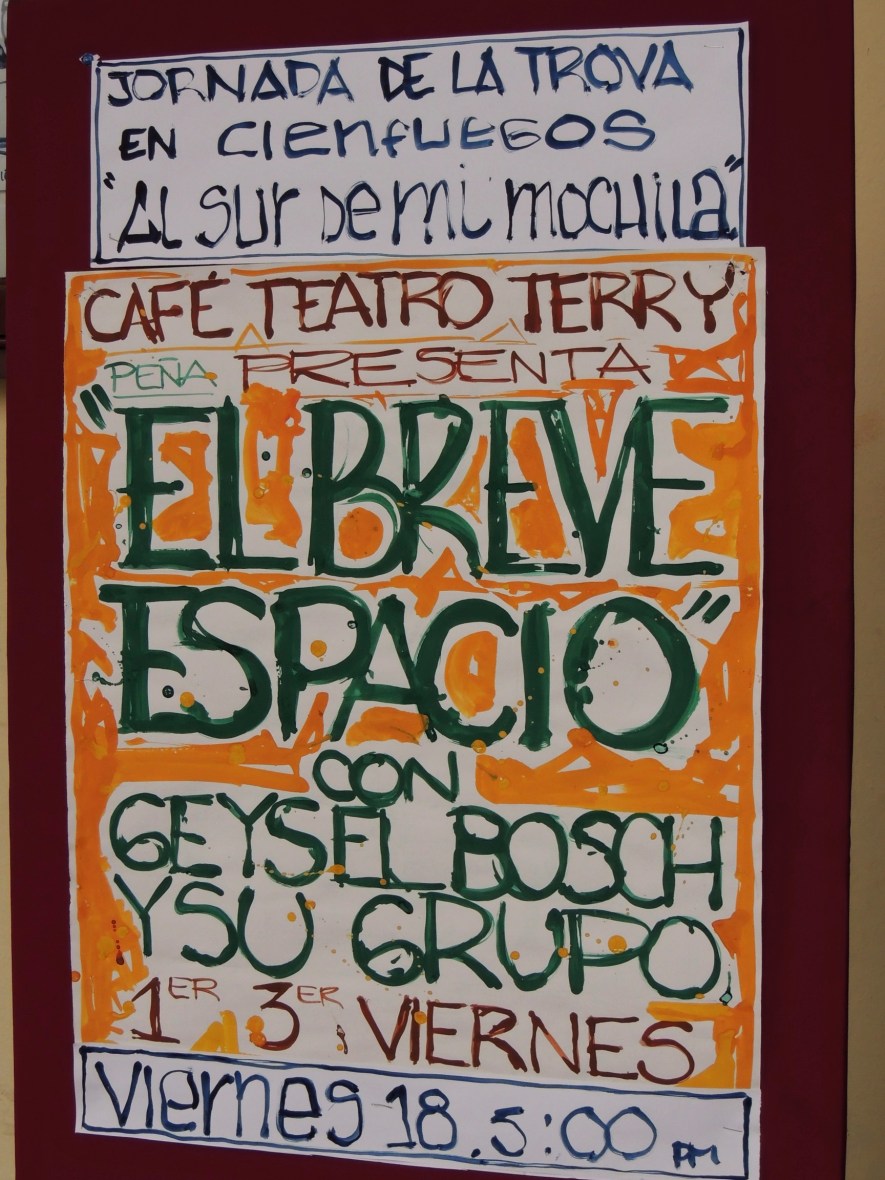 JORNADA DE LA TROVA
EN CIENFUEGOS
"Al sur De mi mocHila"
CAFÉ TEATRO TERRY
PEÑA PRESENTA
"EL BREVE
ESPACIO"
CON
GEYSEL BOSCH
Y SU GRUPO.
1ER 3ER VIERNES
Viernes 18. 5:00 PM